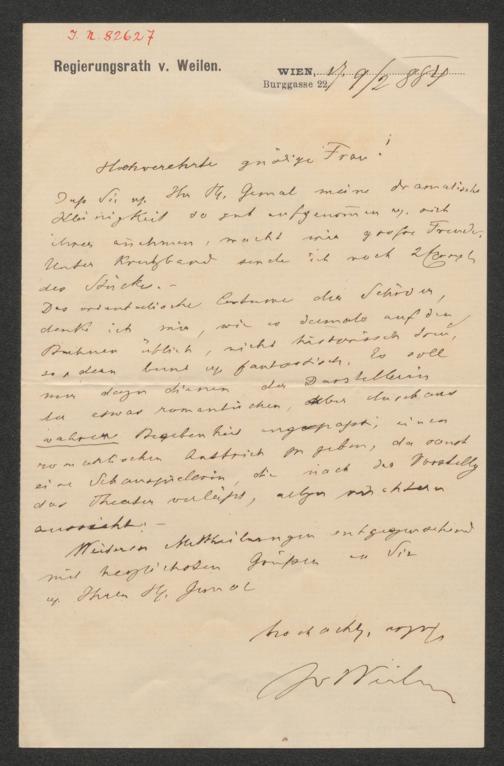 I. N. 82627
Regierungsrath v. Weilen.
WIEN, 9/2
Burggasse 22
Hochverehrte gnädige Frau!
Daß Sie u. Ihr H. Gemal meine dramatische
Kleinigkeit so gut aufgenommen u. sich
ihrer annehmen, macht mir große Freude.
Unter Kreuzband sende ich noch 2 Exempl
des Stückes. –
Das orientalische Costume der Schöder,
denke ich mir, wie es damals auf den
Bühnen üblich, nicht historisch treu,
sondern bunt u. fantastisch. Es soll
nur dazu dienen der Darstellerin
der etwas romantischen, aber durchaus
wahren Begebenheit angepaßt, einen
romantischen Anstrich zu geben, da sonst
eine Schauspielerin, die nach der Vorstellg
das Theater verläßt, allzu nüchtern
aussieht. –
Weiteren Mittheilungen entgegensehend
mit herzlichsten Grüßen an Sie
u. Ihren H. Gemal
hochachtg.
Jv Weilen